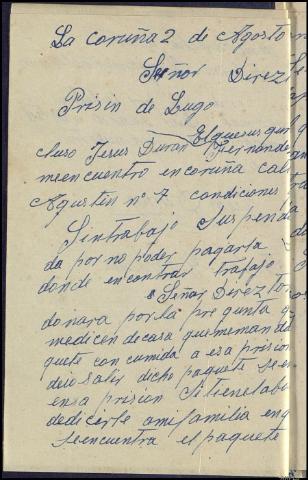 La coruña 2 de Agosto
Señor Direzt
Prisin de Lugo
El que sus qu
cluso Jesus Duran Fernande
meencuentro encoruña call
Agustin nº 7 condiciones
Sintrabajo suspenda
da porno poder pagarla
donde encontrar trafajo
Señor Direztor
donara porla pregunta q
medicen decasa que meman da
quete con cumida a esa prision
dejo salir dicho paquete seen
ensa prision Sitienelabu
dedicirle amifamilia enq
seencuentra el paquete